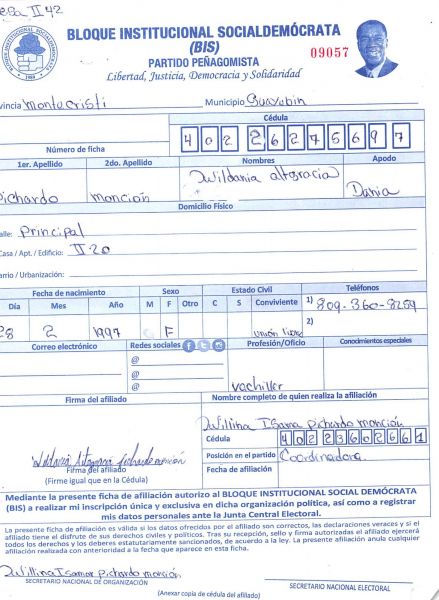 BLOQUE INSTITUCIONAL SOCIALDEMÓCRATA
(BIS)
PARTIDO PEÑAGOMISTA
Libertad, Justicia, Democracia y Solidaridad
09057
BLOQUE INSTITUCIONAL SOCIALDEMÓCRATA
vincia Montecristi Municipio Guayubin
Cédula
402 2627569 7
Número de ficha
1er. Apellido 2do. Apellido Nombres Apodo
Pichardo monción Wildania altagracia Dania
Domicilio Físico
alle: Principal
Casa / Apt. / Edificio: II 20
arrio / Urbanización:
Fecha de nacimiento Sexo Estado Civil Teléfonos
Día Mes Año M F Otro C S Conviviente 1) 809-360-8259
2)
28 2 1997 F unión libre
Correo electrónico Redes sociales Profesión/Oficio Conocimientos especiales
@
@
@
vachiller
Firma del afiliado Nombre completo de quien realiza la afiliación
Willina Isamar pichardo monción
Cédula 40223602661
Posición en el partido Coordinadora
Fecha de afiliación
Firma del afiliado
(Firme igual que en la Cédula)
Mediante la presente ficha de afiliación autorizo al BLOQUE INSTITUCIONAL SOCIAL DEMÓCRATA
(BIS) a realizar mi inscripción única y exclusiva en dicha organización política, así como a registrar
mis datos personales ante la Junta Central Electoral.
La presente ficha de afiliación es válida si los datos ofrecidos por el afiliado son correctos, las declaraciones veraces y si el
afiliado tiene el disfrute de sus derechos civiles y políticos. Tras su recepción, sello y firma autorizados el afiliado ejercerá
todos los derechos y los deberes estatutariamente sancionados, de acuerdo a la ley. La presente afiliación anula cualquier
afiliación realizada con anterioridad a la fecha que aparece en esta ficha.
Willina Isamar pichardo monción
SECRETARIO NACIONAL DE ORGANIZACIÓN SECRETARIO NACIONAL ELECTORAL
(Anexar copia de cédula del afiliado)